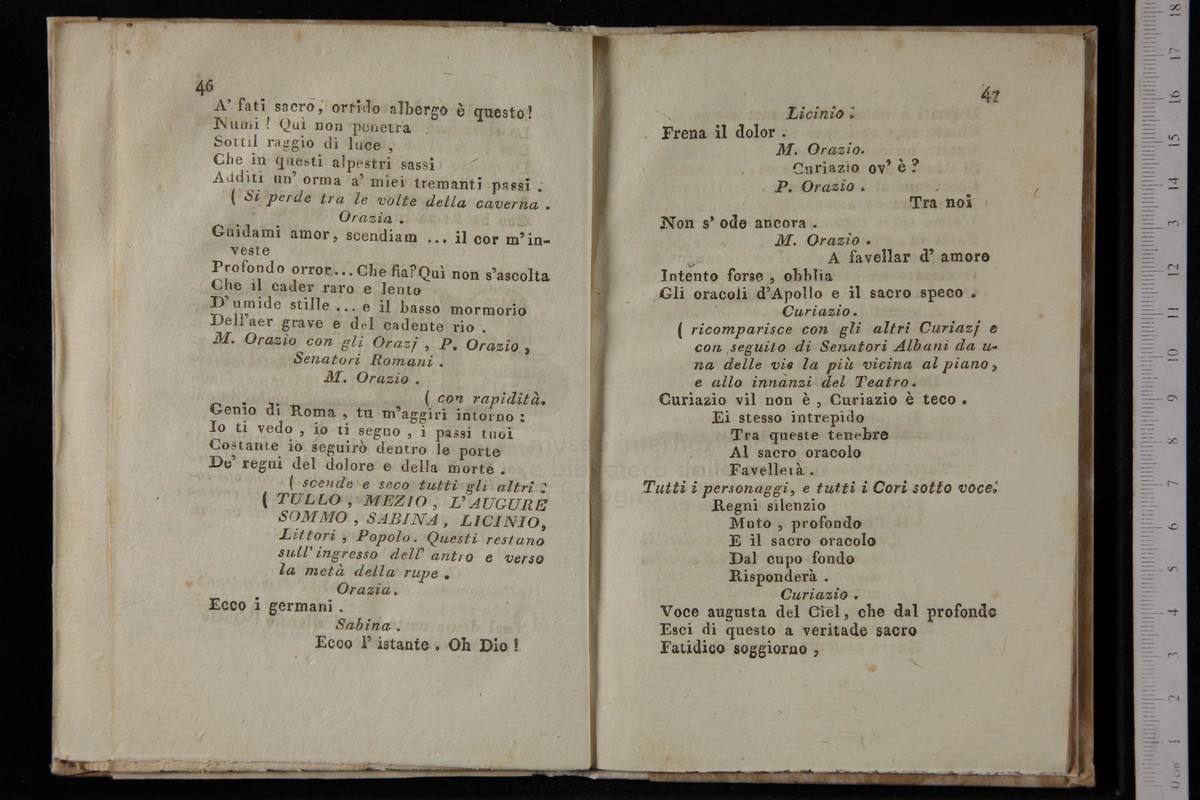 46
A' fati sacro, orrido albergo è questo!
Numi! Quì non penetra
Sottil raggio di luce,
Che in questi alpestri sassi
Additi un' orma a' miei tremanti passi.
( Si perde tra le volte della caverna.
Orazia.
Guidami amor, scendiam ... il cor m'in-
veste
Profondo orror... Che fia? Quì non s'ascolta
Che il cader raro e lento
D'umide stille ... e il basso mormorio
Dell'aer grave e del cadente rio.
M. Orazio con gli Orazj, P. Orazio,
Senatori Romani.
M. Orazio.
( con rapidità.
Genio di Roma, tu m'aggiri intorno:
Io ti vedo, io ti seguo, i passi tuoi
Costante io seguirò dentro le porte
De' regni del dolore e della morte.
( scende e seco tutti gli altri:
( TULLO, MEZIO, L'AUGURE
SOMMO, SABINA, LICINIO,
Littori, Popolo. Questi restano
sull'ingresso dell' antro e verso
la metà della rupe.
Orazia.
Ecco i germani.
Sabina.
Ecco l' istante. Oh Dio!
47
Licinio.
Frena il dolor.
M. Orazio.
Curiazio ov' è?
P. Orazio.
Tra noi
Non s' ode ancora.
M. Orazio.
A favellar d' amore
Intento forse, obblia
Gli oracoli d'Apollo e il sacro speco.
Curiazio.
( ricomparisce con gli altri Curiazj e
con seguito di Senatori Albani da u-
na delle vie la più vicina al piano,
e allo innanzi del Teatro.
Curiazio vil non è, Curiazio è teco.
Ei stesso intrepido
Tra queste tenebre
Al sacro oracolo
Favellerà.
Tutti i personaggi, e tutti i Cori sotto voce.
Regni silenzio
Muto, profondo
E il sacro oracolo
Dal cupo fondo
Risponderà.
Curiazio.
Voce augusta del Ciel, che dal profondo
Esci di questo a veritade sacro
Fatidico soggiorno,
0 cm 1 2 3 4 5 6 7 8 9 10 11 12 13 14 15 16 17 18